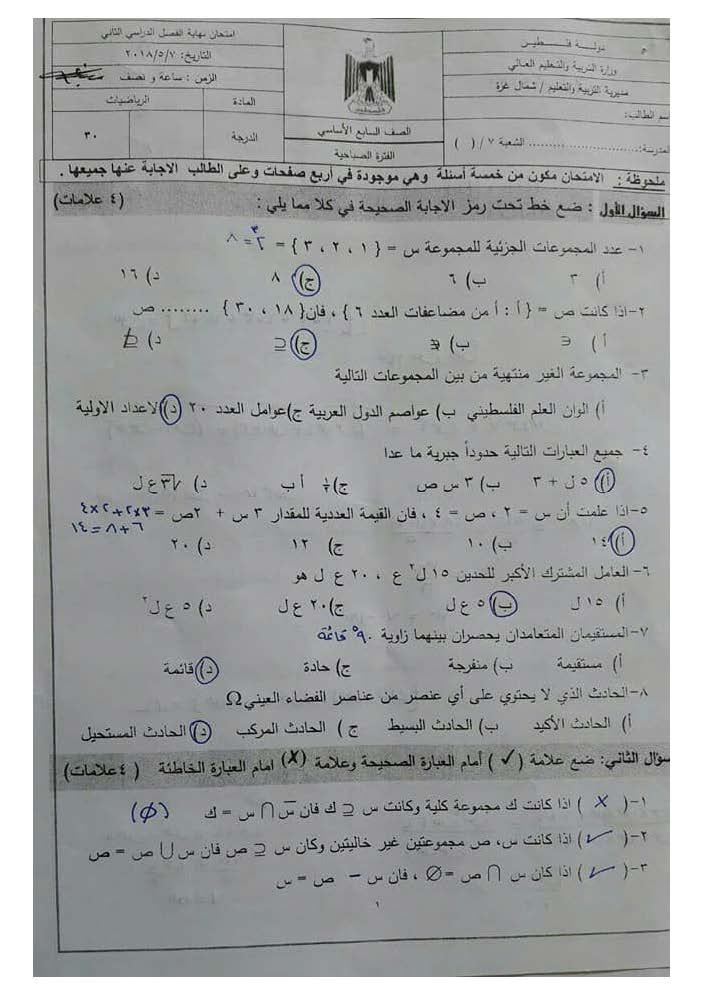 دولة فلسطين
وزارة التربية والتعليم العالي
مديرية التربية والتعليم / شمال غزة
سم الطالب:
المدرسة:........................ الشعبة ٧ / ( )
فلسطين
الصف السابع الأساسي
الفترة الصباحية
امتحان نهاية الفصل الدراسي الثاني
التاريخ: ٢٠١٨/٥/٧
الزمن : ساعة و نصف
المادة الرياضيات
الدرجة ٣٠
ملحوظة : الامتحان مكون من خمسة أسئلة وهي موجودة في أربع صفحات وعلى الطالب الاجابة عنها جميعها .
السؤال الأول : ضع خط تحت رمز الاجابة الصحيحة في كلا مما يلي : (٤ علامات)
١- عدد المجموعات الجزئية للمجموعة س = { ١ ، ٢ ، ٣ } = ٢³ = ٨
أ) ٣ ب) ٦ ج) ٨ د) ١٦
٢-اذا كانت ص = { أ : أ من مضاعفات العدد ٦ } ، فان{ ١٨ ، ٣٠ } ........ ص
أ ) ∋ ب) ∌ ج) ⊇ د) ⊉
٣- المجموعة الغير منتهية من بين المجموعات التالية
أ) الوان العلم الفلسطيني ب) عواصم الدول العربية ج)عوامل العدد ٢٠ د) الاعداد الاولية
٤- جميع العبارات التالية حدوداً جبرية ما عدا
أ) ٥ ل + ٣ ب) ٣ س ص ج) ½ أ ب د) √٣ ع ل
٥-اذا علمت أن س = ٢ ، ص = ٤ ، فان القيمة العددية للمقدار ٣ س + ٢ص = ٣×٢+٢×٤
٦+٨=١٤
أ) ١٤ ب) ١٠ ج) ١٢ د) ٢٠
٦-العامل المشترك الأكبر للحدين ١٥ ل² ع ، ٢٠ ع ل هو
أ) ١٥ ل ب) ٥ ع ل ج) ٢٠ ع ل د) ٥ ع ل²
٧-المستقيمان المتعامدان يحصران بينهما زاوية ٩٠° قائمة
أ) مستقيمة ب) منفرجة ج) حادة د) قائمة
٨-الحادث الذي لا يحتوي على أي عنصر من عناصر الفضاء العيني Ω
أ) الحادث الأكيد ب) الحادث البسيط ج ) الحادث المركب د) الحادث المستحيل
سؤال الثاني: ضع علامة ( ✓ ) أمام العبارة الصحيحة وعلامة (X) امام العبارة الخاطئة ( ٤ علامات)
١-( × ) اذا كانت ك مجموعة كلية وكانت س ⊇ ك فان س̅ ∩ س = ك (∅)
٢-( ✓ ) اذا كانت س، ص مجموعتين غير خاليتين وكان س ⊇ ص فان س ∪ ص = ص
٣-( ✓ ) اذا كان س ∩ ص = ∅ ، فان س – ص = س
١